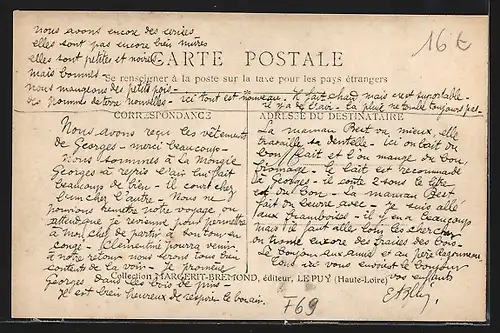 nous avons encore des cerises
elles sont pas encore bien mûres
elles sont petites et noires
mais bonnes
nous mangeons des petits pois -
des pommes de terre nouvelles - ici tout est nouveau. Il fait chaud mais c'est suportable -
il y a de l'air - la pluie ne tombe toujours pas -
16 E
CARTE POSTALE
Se renseigner à la poste sur la taxe pour les pays étrangers
CORRESPONDANCE
Nous avons reçu les vêtements
de Georges - merci beaucoup -
Nous sommes à La Mongie
Georges a repris l'air lui fait
beaucoup de bien - il court chez
l'un chez l'autre - Nous ne
pouvions remettre notre voyage ou
attendre je reviens pour permettre
à mon chef de partir à son tour en
congé - Clementine pourra venir
à notre retour nous serons tous bien
contents de la voir - Je promène
Georges dans les bois de pins -
il est bien heureux de respirer le bon air.
ADRESSE DU DESTINATAIRE
La maman va mieux, elle
travaille sa dentelle - ici on boit du
bon lait et l'on mange du bon
fromage - le lait est recommandé
à Georges - il coute 6 sous le litre
est du bon - La maman
fait du beurre avec - je travaille
aux framboises - il y en a beaucoup
mais il faut aller tous les chercher
on trouve encore des fraises des bois -
Le bonjour aux amis et au père
Tous vous envoient le bonjour
vos enfants
Collection MARGERIT-BREMOND, éditeur, LE PUY (Haute-Loire)
F69